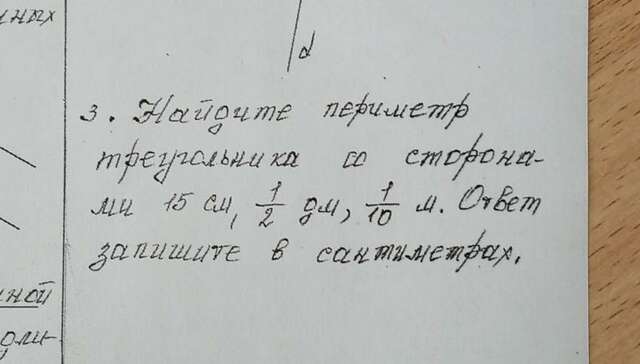 нных
d
3. Найдите периметр
треугольника со сторона-
ми 15 см, 1/2 дм, 1/10 м. Ответ
запишите в сантиметрах.
ной
оли-